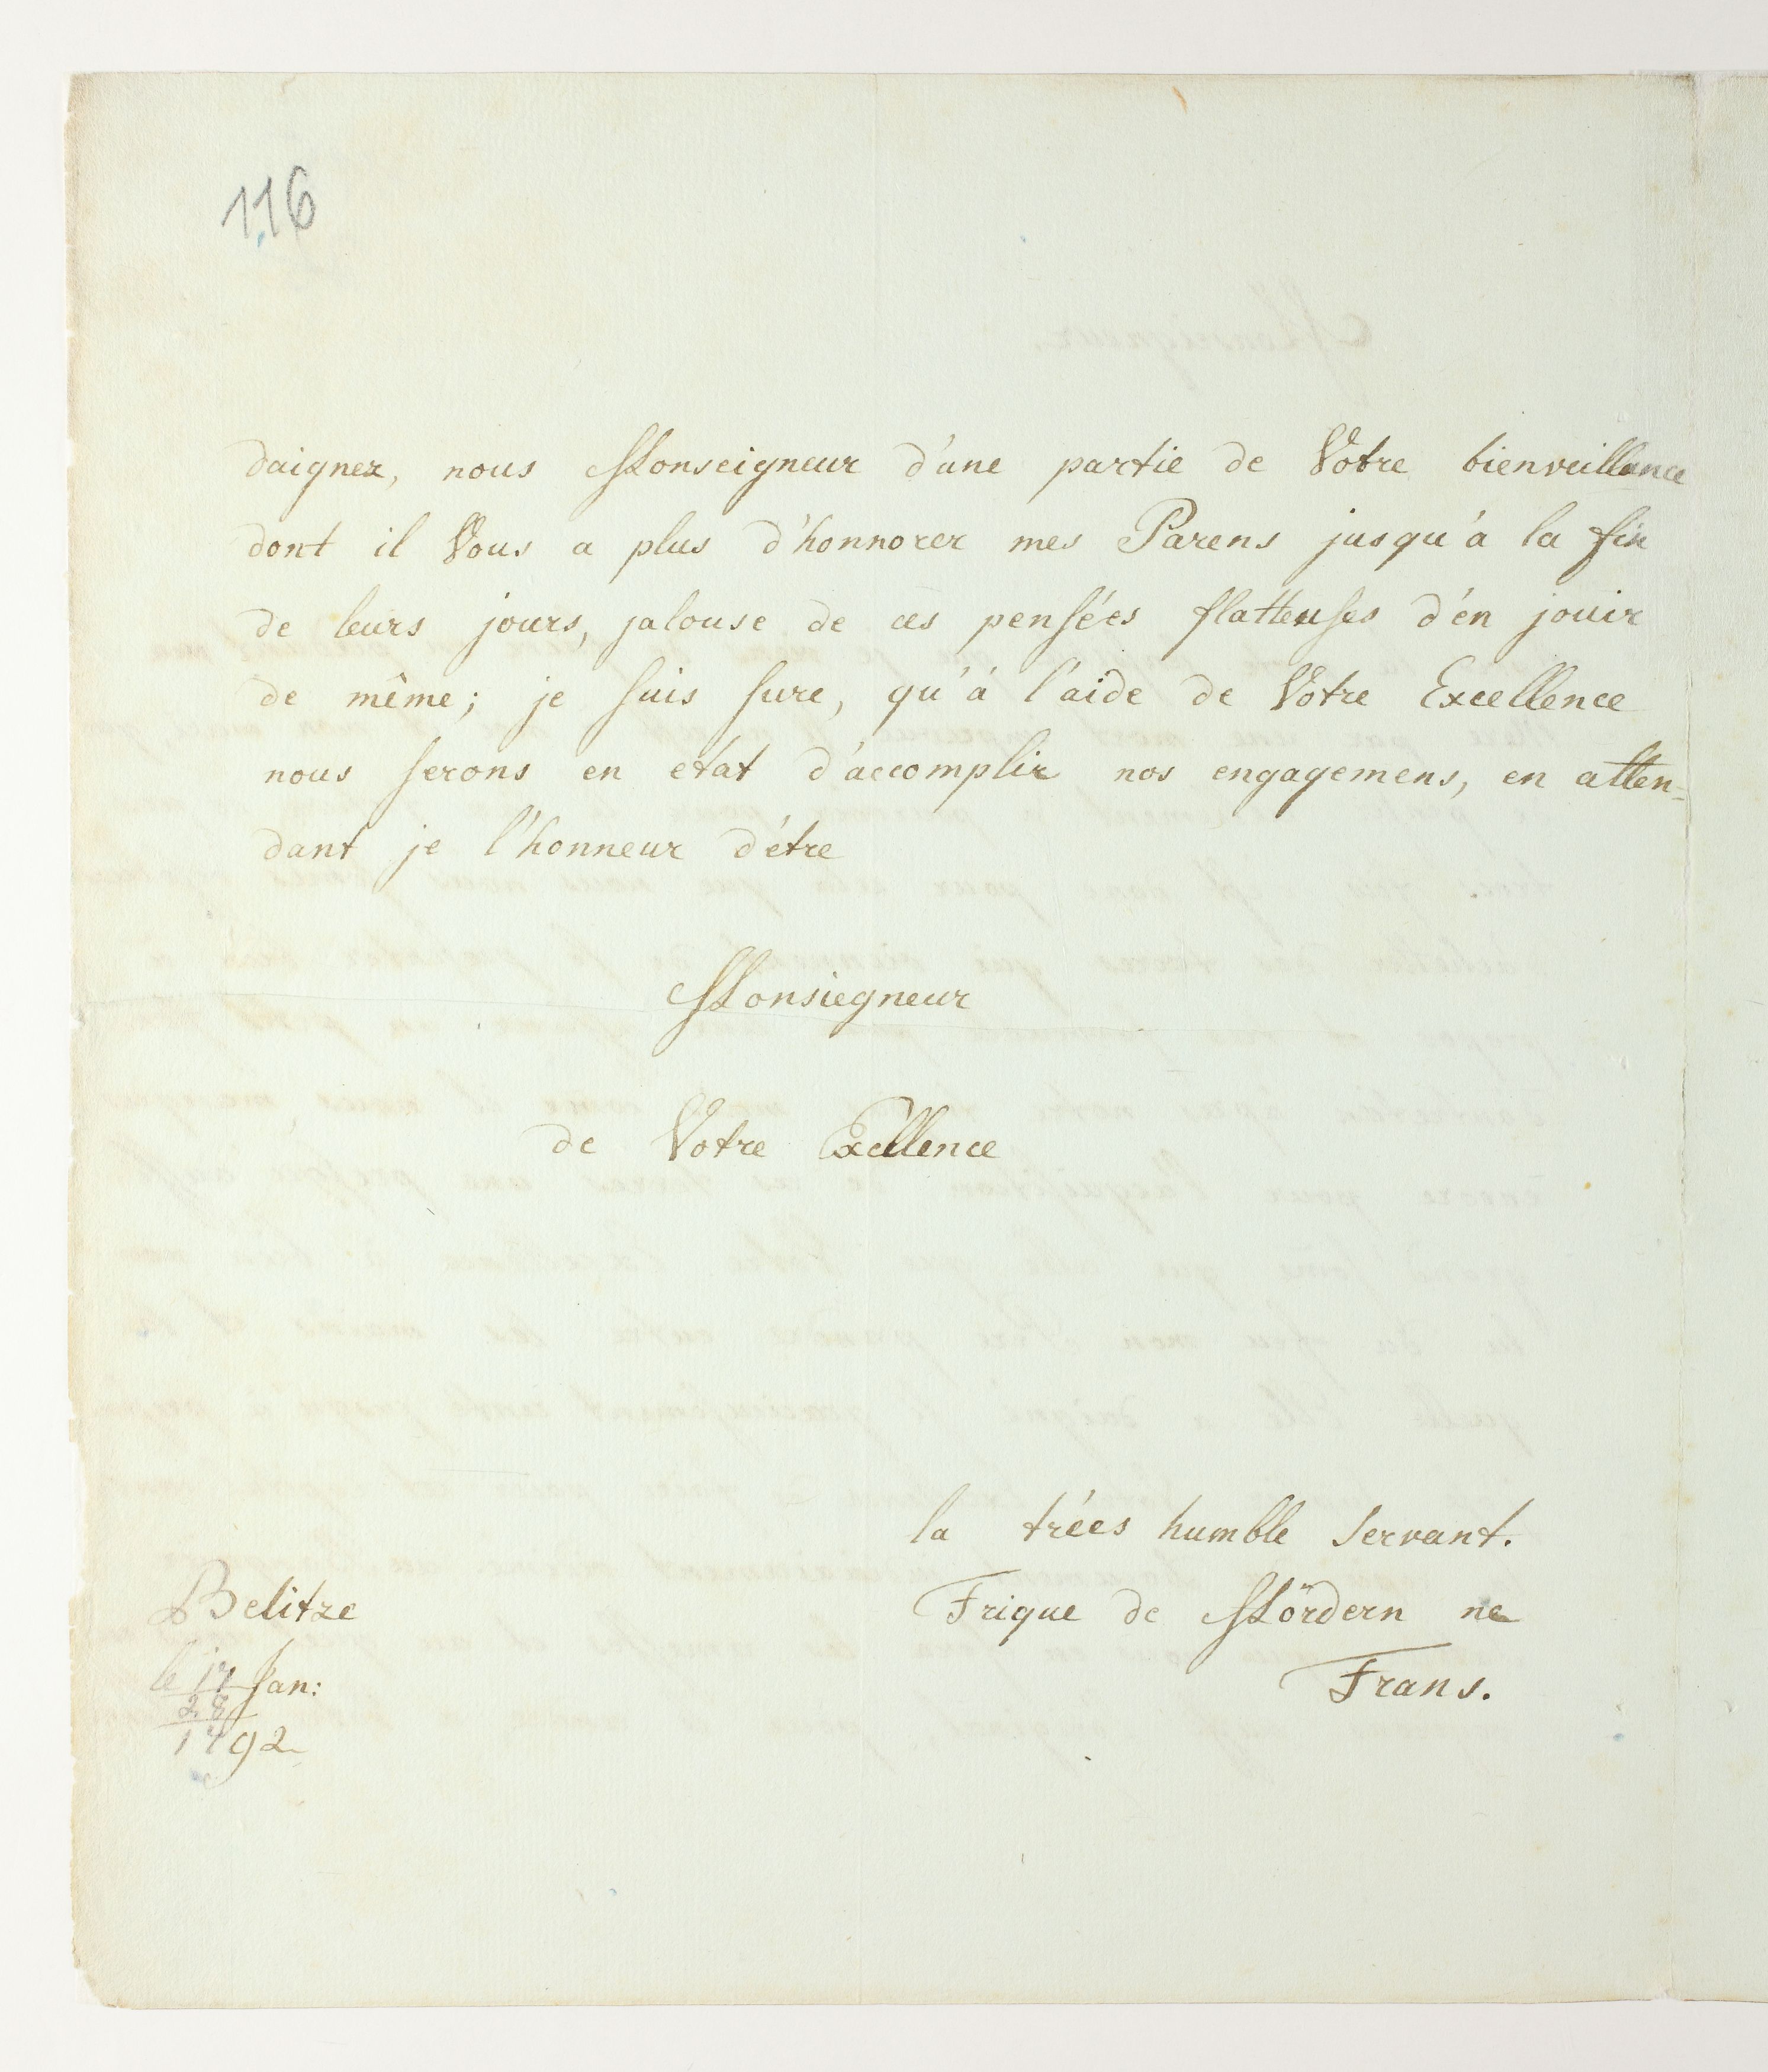 116
daignez, nous Monseigneur d'une partie de Votre bienveillance
dont il Vous a plus d'honnorer mes Parens jusqu'à la fin
de leurs jours, jalouse de ces pensées flatteuses d'én jouir
de même; je suis sure, qu'à l'aide de Votre Excellence
nous serons en etát d'accomplir nos engagemens, en atten=
dant je l'honneur d'étre
Monsiegneur
de Votre Excellence
la trées humble Servant.
Frique de Mördern ne
Frans.
Belitze
le 17 Jan:
28
1792